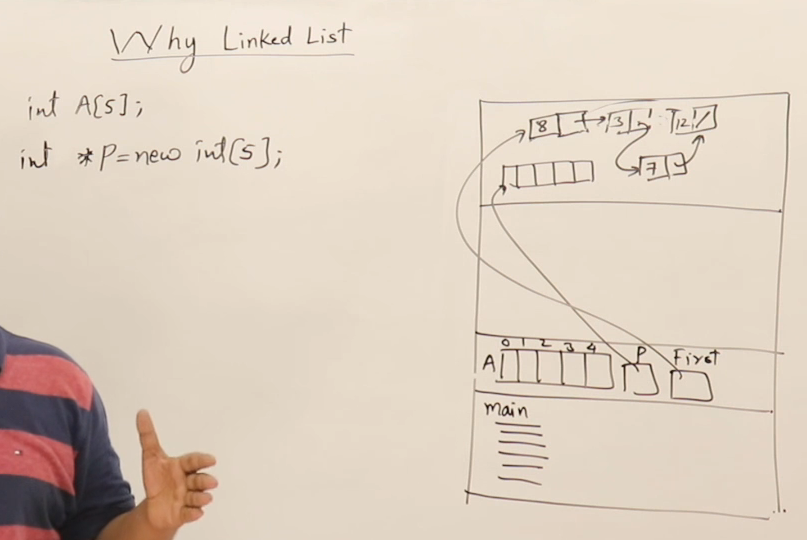 Why Linked List
int A[5];
int *P=new int[5];
8 3 12
7
0 1 2 3 4
A P First
main